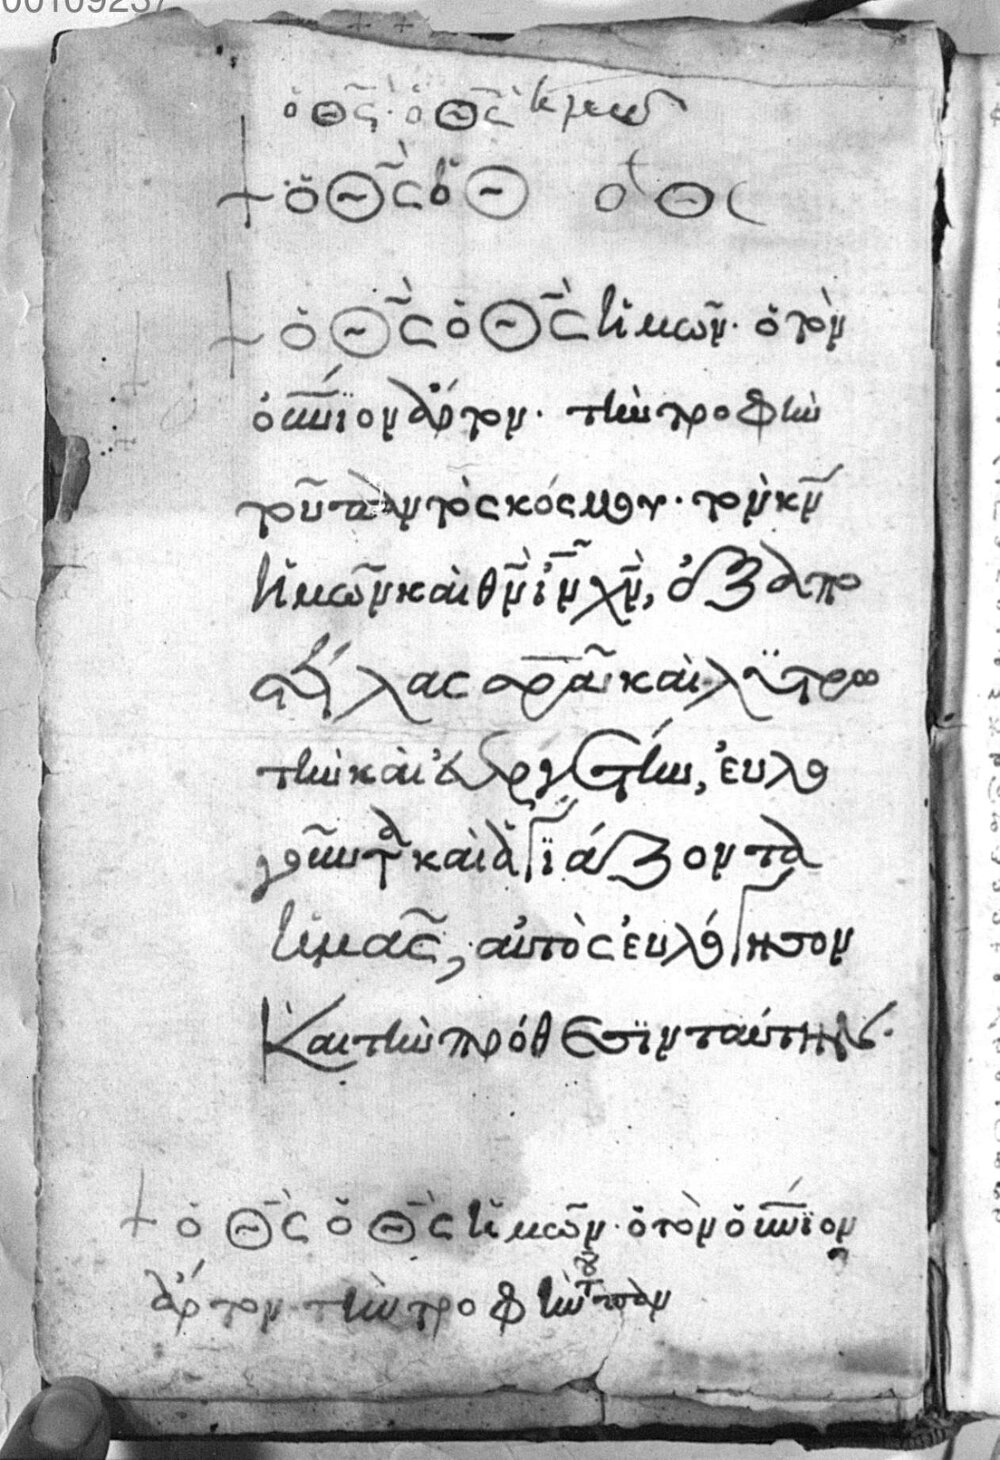 00109237
ὁ Θς ὁ Θς ἡμῶ
+ ὁ Θς ὁ Θ ὁ Θς
+ ὁ Θς ὁ Θς ἡμῶν· ὁ τὸν
οὐνϊον ἄρτον· τὴν τροφὴν
τοῦ παντὸς κόσμου· τὸν κν
ἡμῶν καὶ θν ιν χν, ἐξαπο
στείλας σρα καὶ λϋτρω
τὴν καὶ εὐεργέτην, εὐλο
γοῦντα καὶ ἁγϊάζοντα
ἡμᾶς, αὐτὸς εὐλόγησον
καὶ τὴν πρόθεσϊν ταύτην
+ ὁ Θς ὁ Θς ἡμῶν· ὁ τὸν οὐνϊον
ἄρτον τὴν τροφὴν τοῦ